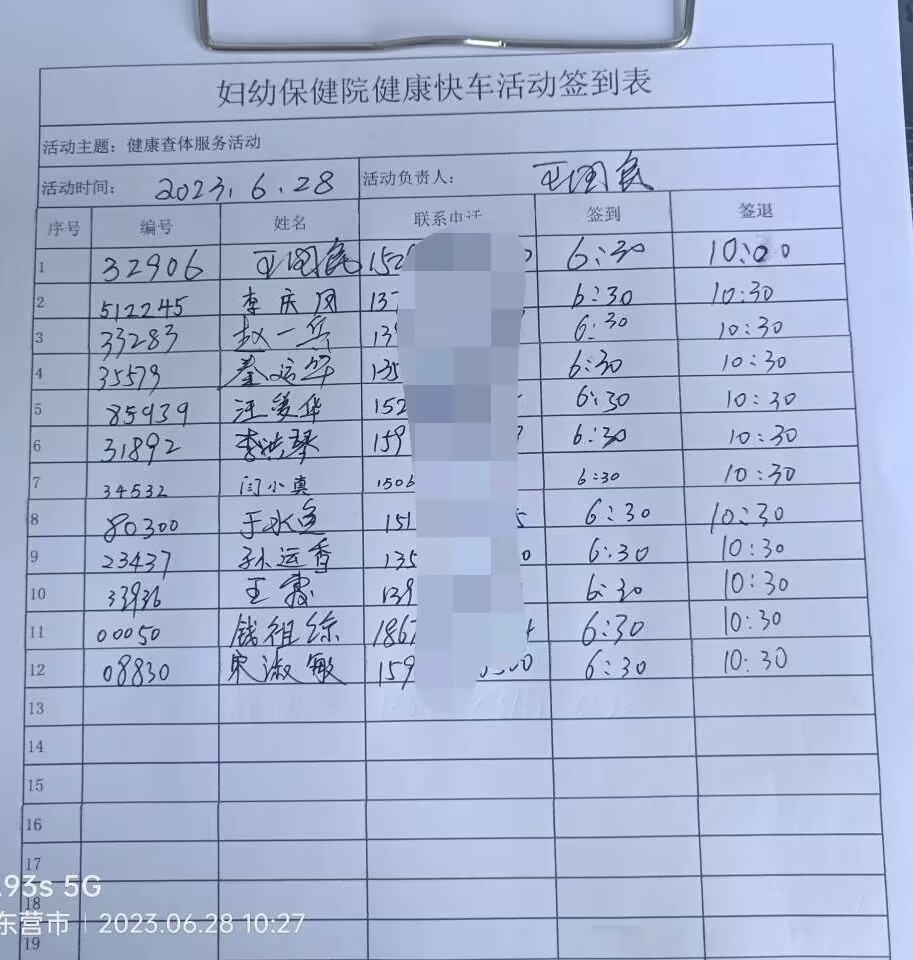 妇幼保健院健康快车活动签到表
活动主题：健康查体服务活动
活动时间： 2023.6.28 活动负责人： 王国良
序号 编号 姓名 联系电话 签到 签退
1 32906 王国良 152 0 6:30 10:00
2 512245 李庆凤 137 6:30 10:30
3 33283 赵一兵 139 6:30 10:30
4 35579 秦运华 135 6:30 10:30
5 85939 汪爱华 152 6:30 10:30
6 31892 李洪琴 159 6:30 10:30
7 34532 闫小真 1506 6:30 10:30
8 80300 于水鱼 151 5 6:30 10:30
9 23437 孙运香 135 0 6:30 10:30
10 33936 王霞 139 6:30 10:30
11 00050 钱祖综 1867 6:30 10:30
12 08830 宋淑敏 159 6:30 10:30
13
14
15
16
17
18
19
A93s 5G
东营市 | 2023.06.28 10:27